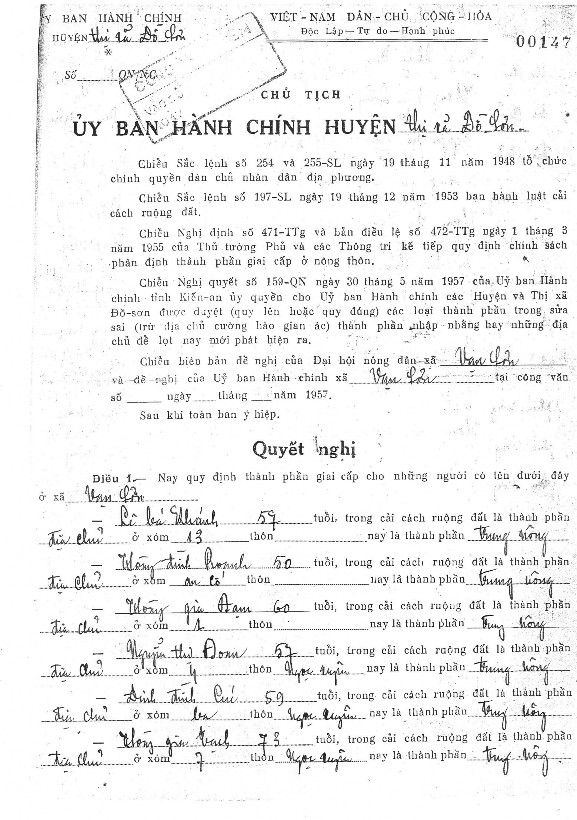 Ỷ BAN HÀNH CHÍNH
HUYỆN thị xã Đồ Sơn
VIỆT-NAM DÂN-CHỦ CỘNG-HÒA
Độc Lập—Tự do—Hạnh phúc
00147
Số QN/NC
CHỦ TỊCH
ỦY BAN HÀNH CHÍNH HUYỆN thị xã Đồ Sơn
Chiểu Sắc lệnh số 254 và 255-SL ngày 19 tháng 11 năm 1948 tổ chức
chính quyền dân chủ nhân dân địa phương.
Chiểu Sắc lệnh số 197-SL ngày 19 tháng 12 năm 1953 ban hành luật cải
cách ruộng đất.
Chiểu Nghị định số 471-TTg và bản điều lệ số 472-TTg ngày 1 tháng 3
năm 1955 của Thủ tướng Phủ và các Thông tri kế tiếp quy định chính sách
phân định thành phần giai cấp ở nông thôn.
Chiểu Nghị quyết số 159-QN ngày 30 tháng 5 năm 1957 của Uỷ ban Hành
chính tỉnh Kiến-an ủy quyền cho Uỷ ban Hành chính các Huyện và Thị xã
Đồ-sơn được duyệt (quy lên hoặc quy đúng) các loại thành phần trong sửa
sai (trừ địa chủ cường hào gian ác) thành phần nhập nhằng hay những địa
chủ để lọt nay mới phát hiện ra.
Chiểu biên bản đề nghị của Đại hội nông dân xã Vạn Sơn
và đề nghị của Uỷ ban Hành-chính xã Vạn Sơn tại công văn
số ngày tháng năm 1957.
Sau khi toàn ban ý hiệp.
Quyết nghị
Điều 1— Nay quy định thành phần giai cấp cho những người có tên dưới đây
ở xã Vạn Sơn
— Lê bá Khánh 57 tuổi, trong cải cách ruộng đất là thành phần
địa chủ ở xóm 13 thôn nay là thành phần trung nông
— Hoàng đình 50 tuổi, trong cải cách ruộng đất là thành phần
địa chủ ở xóm thôn nay là thành phần trung nông
— Hoàng gia 60 tuổi, trong cải cách ruộng đất là thành phần
địa chủ ở xóm 1 thôn nay là thành phần trung nông
— Nguyễn thị Doan 57 tuổi, trong cải cách ruộng đất là thành phần
địa chủ ở xóm thôn Ngọc xuyên nay là thành phần trung nông
— Đinh đình 59 tuổi, trong cải cách ruộng đất là thành phần
địa chủ ở xóm ba thôn Ngọc xuyên nay là thành phần trung nông
— Hoàng gia 73 tuổi, trong cải cách ruộng đất là thành phần
địa chủ ở xóm 7 thôn Ngọc xuyên nay là thành phần trung nông